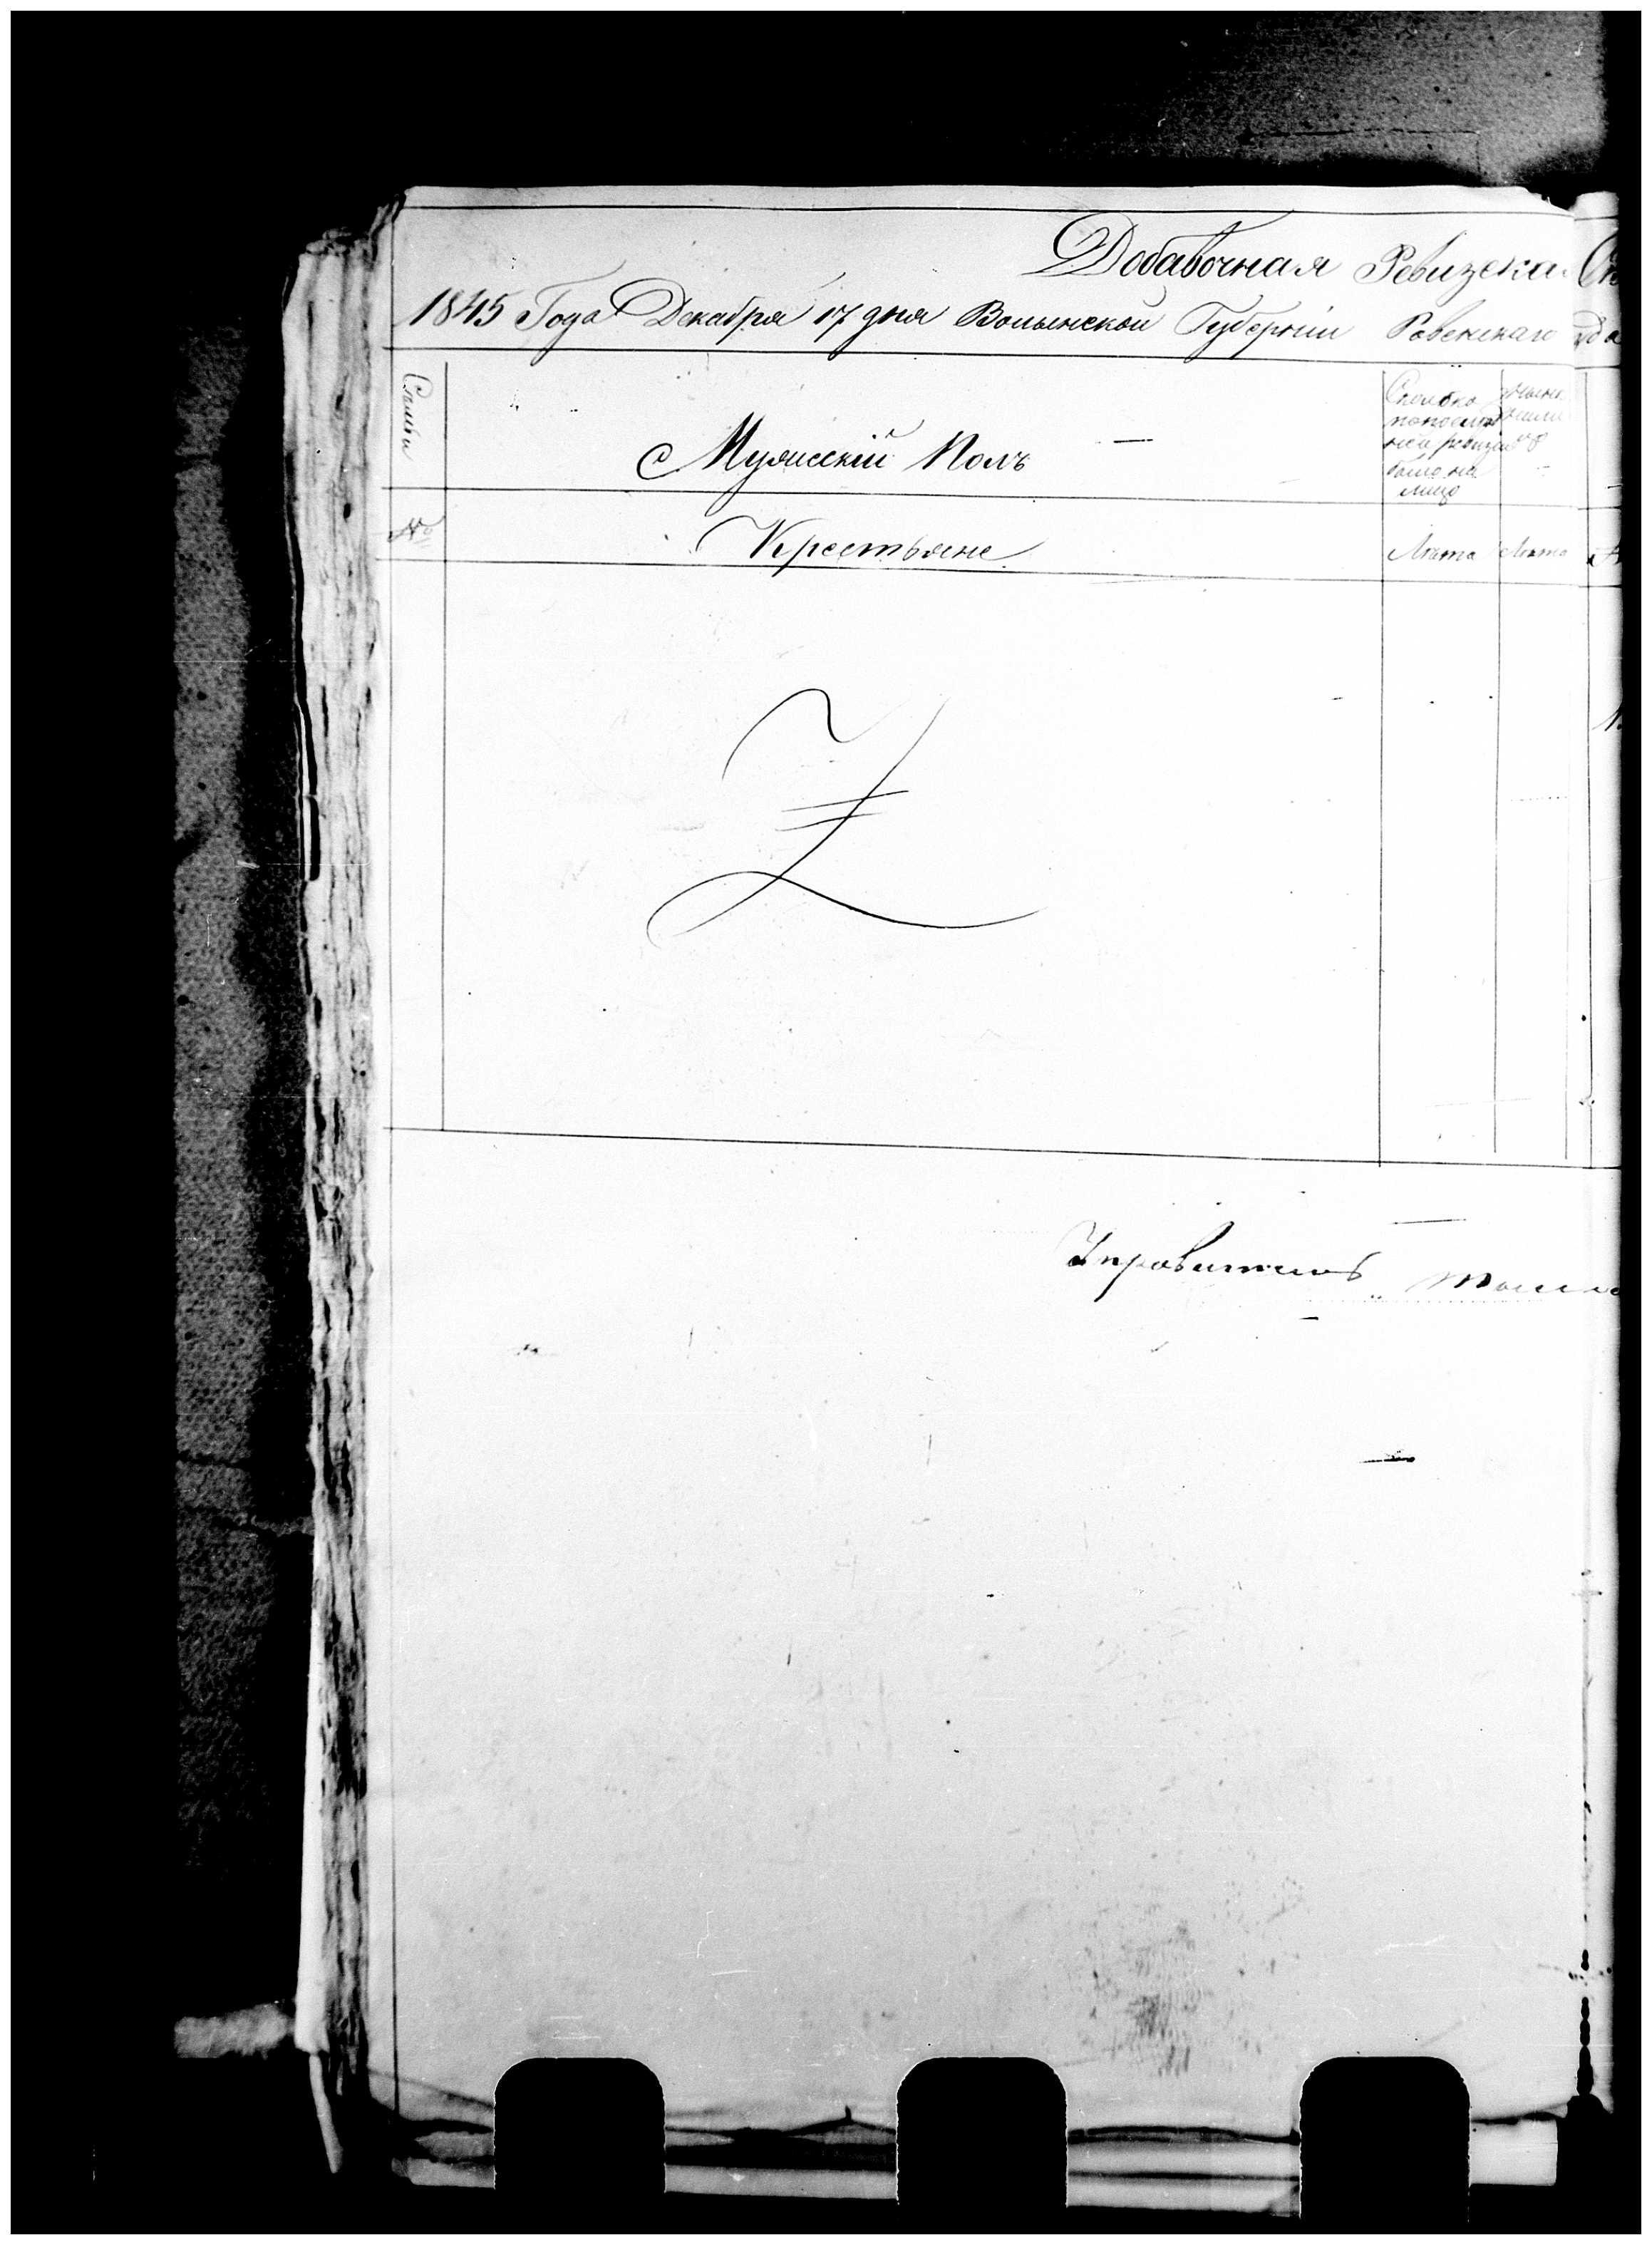 Добавочная Ревизска
1845 Года Декабря 17 дня Волынской Губерніи Ровенскаго
Семьи
Мужескій Полъ
Сколько
по последн
ней ревизіи
было на
лицо
№
Крестьяне
Лѣта Лѣта